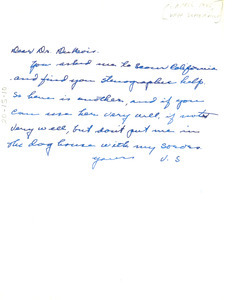 Dear Dr. DuBois:
You asked me to scour California
and find you stenographic help.
So here is another, and if you
can use her very well, if not
very well, but don't put me in
the dog house with my sorors
yours V. S